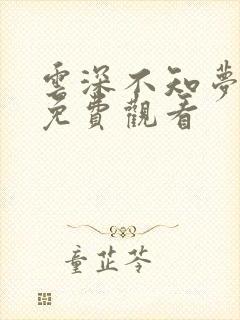 雲深不知夢
免費觀看
童芷苓